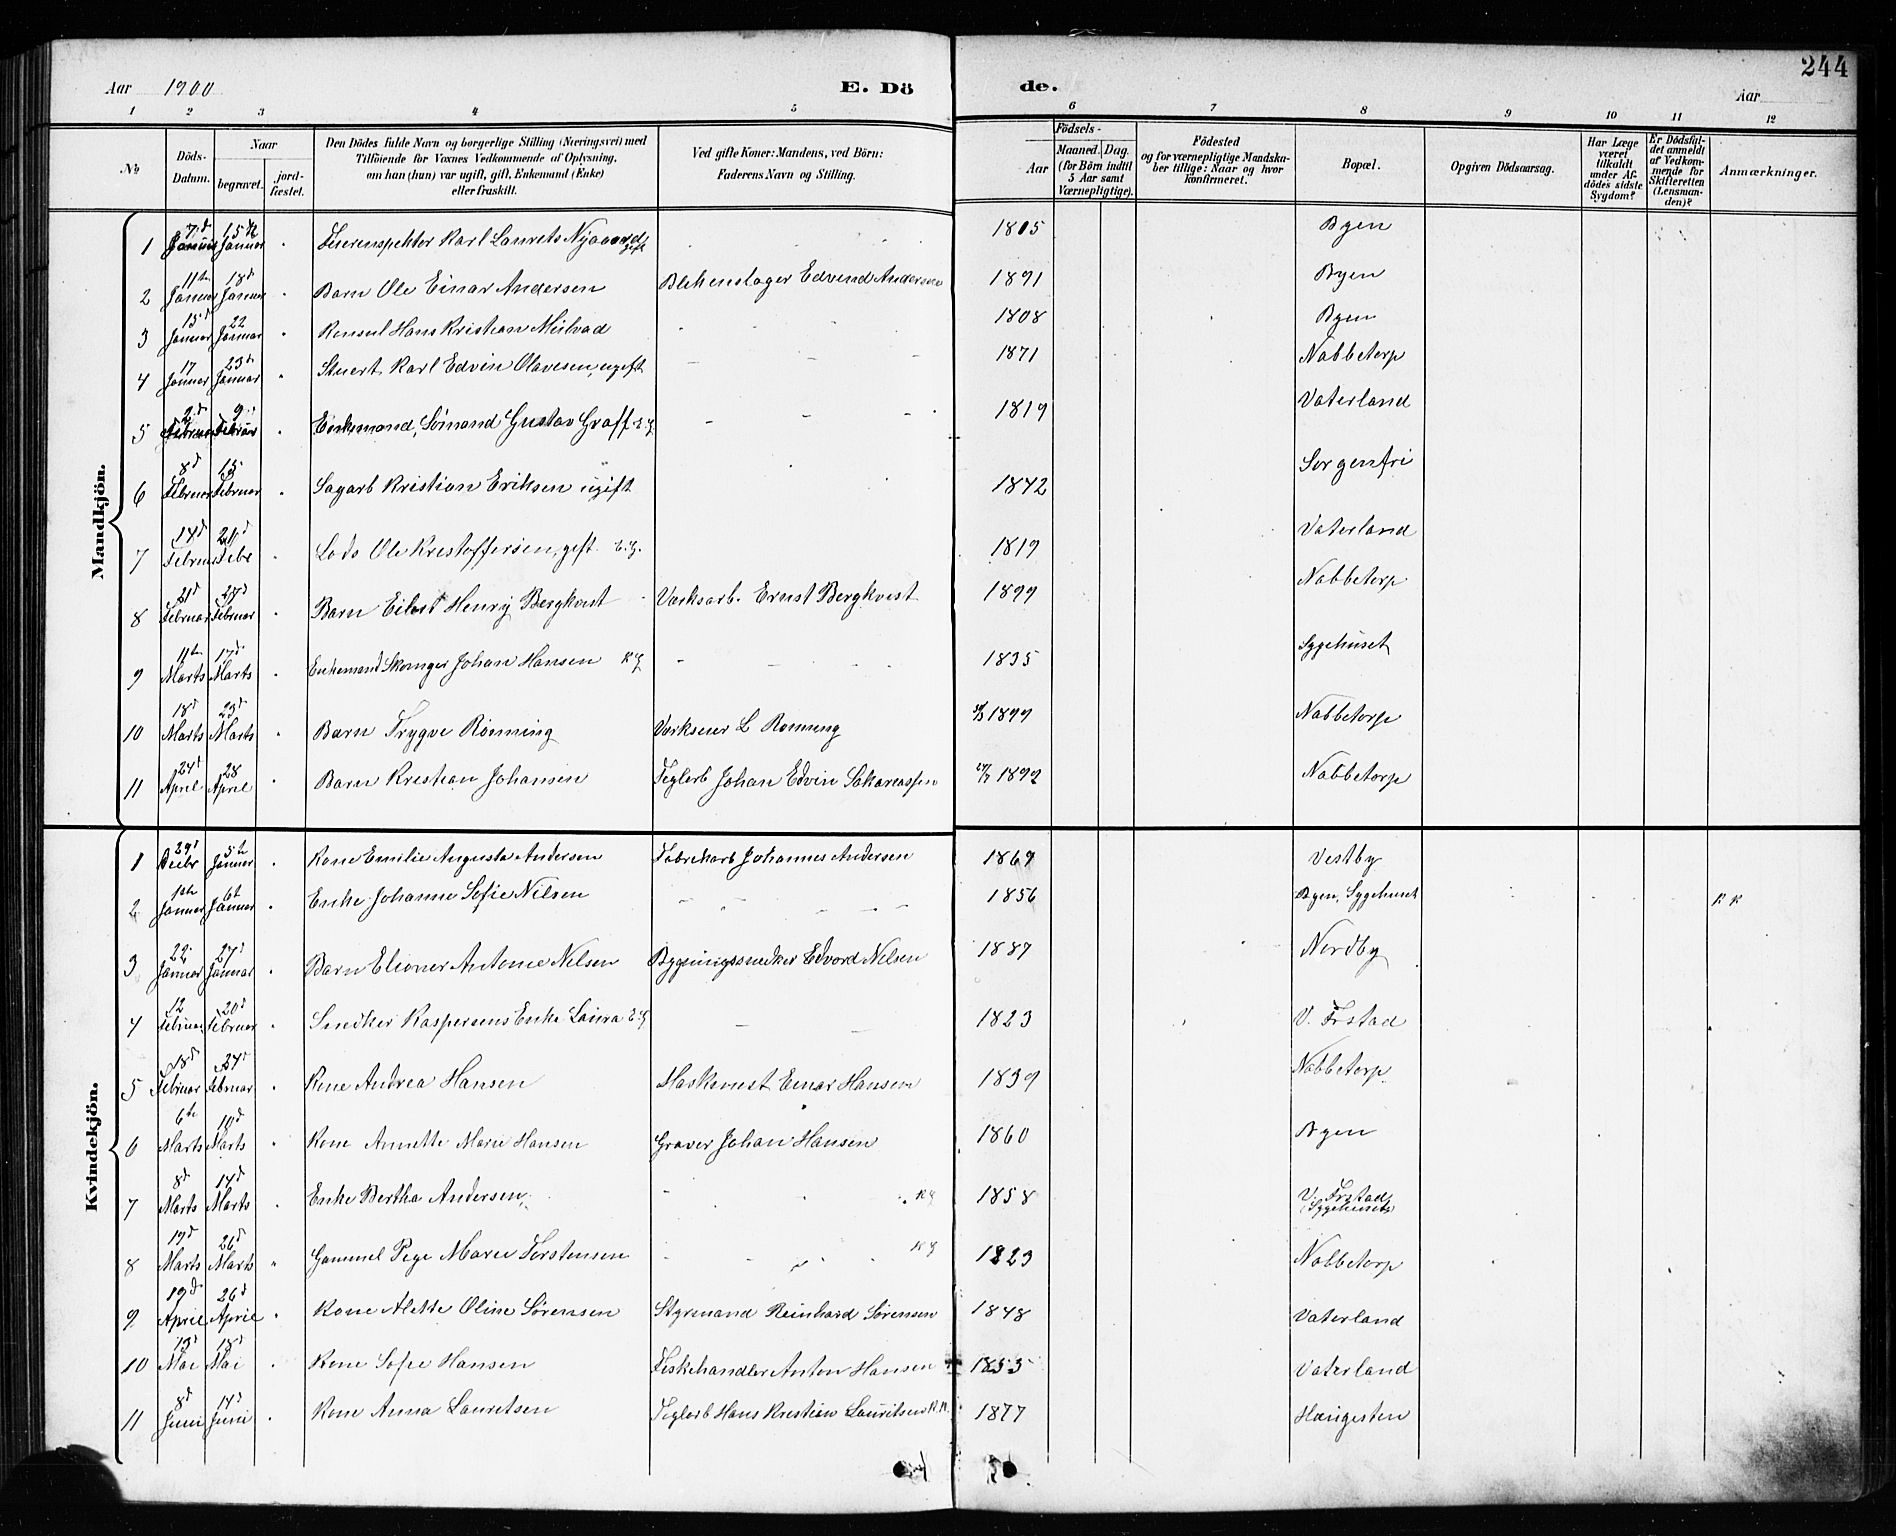 244
Aar 1900 E. Dö de. Aar
1 2 3 4 5 6 7 8 9 10 11 12
No
Döds-Datum.
Naar
begravet.
jord-fæstet.
Den Dödes fulde Navn og borgerlige Stilling (Næringsvei) med
Tilföiende for Voxnes Vedkommende af Oplysning,
om han (hun) var ugift, gift, Enkemand (Enke)
eller fraskilt.
Ved gifte Koner: Mandens, ved Börn:
Faderens Navn og Stilling.
Födsels-
Aar
Maaned. Dag.
(for Börn indtil
5 Aar samt
Værnepligtige).
Födested
og for værnepligtige Mandska-
ber tillige: Naar og hvor
konfirmeret.
Bopæl.
Opgiven Dödsaarsag.
Har Læge
været
tilkaldt
under Af-
dödes sidste
Sygdom?
Er Dödsfal-
det anmeldt
af Vedkom-
mende for
Skifteretten
(Lensman-
den)?
Anmærkninger.
Mandkjön.
1 7d Januar 15de Januar Karl Laurets Nygaard gift 1805 Byen
2 11te Januar 18d Januar Barn Ole Einar Andersen Blikenslager Edvind Andersen 1891 Byen
3 15d Januar 22 Januar Konsul Hans Kristian Meilvad 1808 Byen
4 17 Januar 23d Januar Stuert Karl Edvin Olavesen, ugift 1871 Nabbetorp
5 2d Februar 9 Februar Enkemand, Sömand Gustav Graff E.G. 1819 Vaterland
6 8d Februar 15 Februar Sagarb Kristian Eriksen ugift 1842 Sorgenfri
7 14d Februar 20d Febr Lods Ole Kristoffersen, gift E.G. 1819 Vaterland
8 21d Februar 27d Februar Barn Eilert Henry Bergkvist Værksarb. Ernst Bergkvist 1899 Nabbetorp
9 11te Marts 17d Marts Enkemand Johan Hansen 1835 Sygehuset
10 18d Marts 23d Marts Barn Trygve Rönning L Rönning 1899 Nabbetorp
11 24d April 28 April Barn Kristian Johansen Teglarb Johan Edvin Sakariassen 1899 Nabbetorp
Kvindekjön.
1 29d Decbr 5te Januar Kone Emilie Augusta Andersen Fabrikarb Johannes Andersen 1869 Vestby
2 1ste Januar 6te Januar Enke Johanne Sofie Nilsen 1856 Byen, Sygehuset
3 22 Januar 27d Januar Barn Elionor Antonie Nilsen Bygningssnedker Edvard Nilsen 1887 Nordby
4 12 Februar 20d Februar Snedker Kaspersens Enke Laura E.G 1823 V. Frstad
5 18d Februar 24d Februar Kone Andrea Hansen Maskinist Einar Hansen 1839 Nabbetorp
6 6te Marts 10d Marts Kone Annette Marie Hansen Graver Johan Hansen 1860 Byen
7 8d Marts 14d Marts Enke Bertha Andersen 1858 V. Frstad Sygehuset
8 19d Marts 26d Marts Gammel Pige Marie Torstensen 1823 Nabbetorp
9 19d April 26d April Kone Alette Oline Sörensen Styrmand Reinhard Sörensen 1848 Vaterland
10 13d Mai 18d Mai Kone Sofie Hansen Fiskehandler Anton Hansen 1855 Vaterland
11 8d Juni 14d Juni Kone Anna Lauretsen Teglarb Hans Kristian Lauritsen 1877 Haugesten